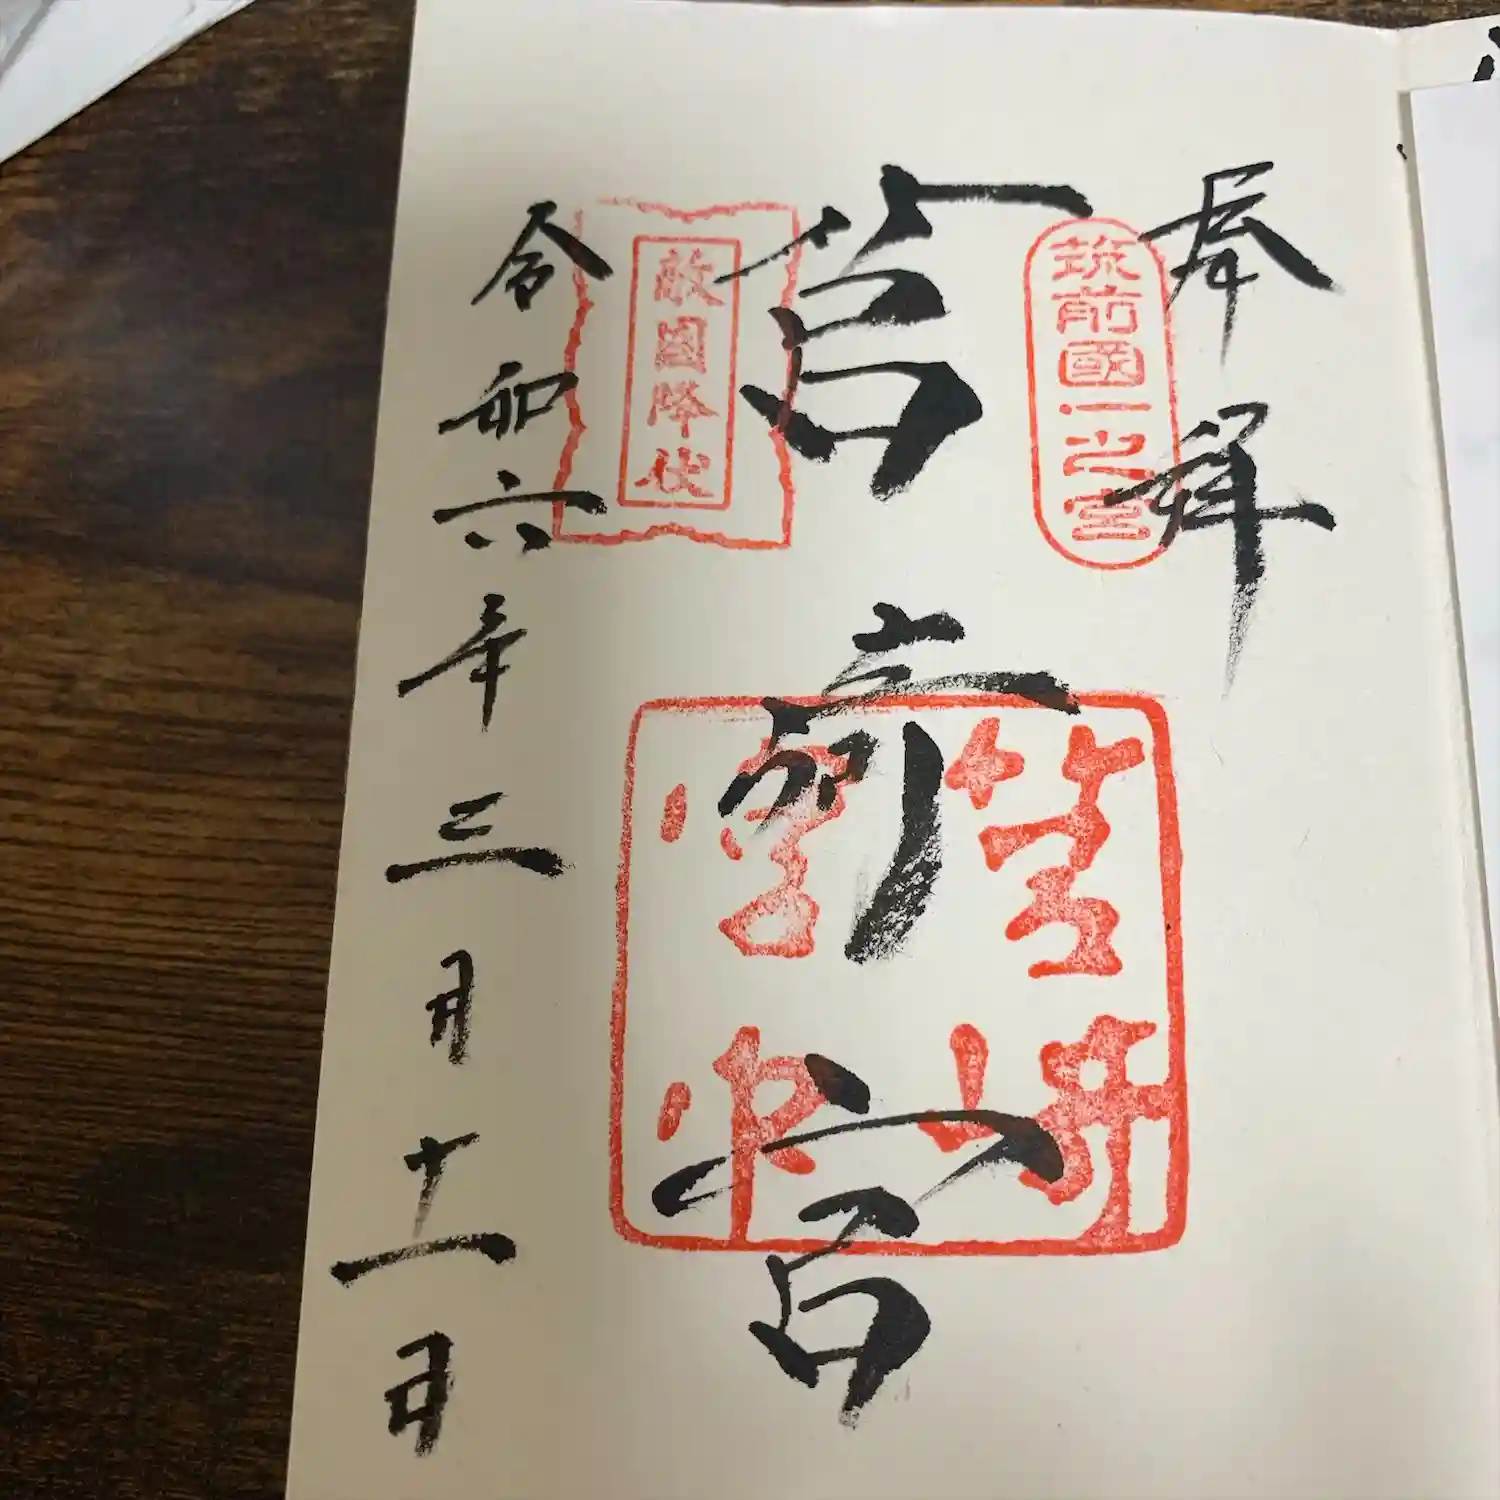 奉拝
筑前國一之宮
筥崎宮
筥崎宮印
敵國降伏
令和六年三月十一日